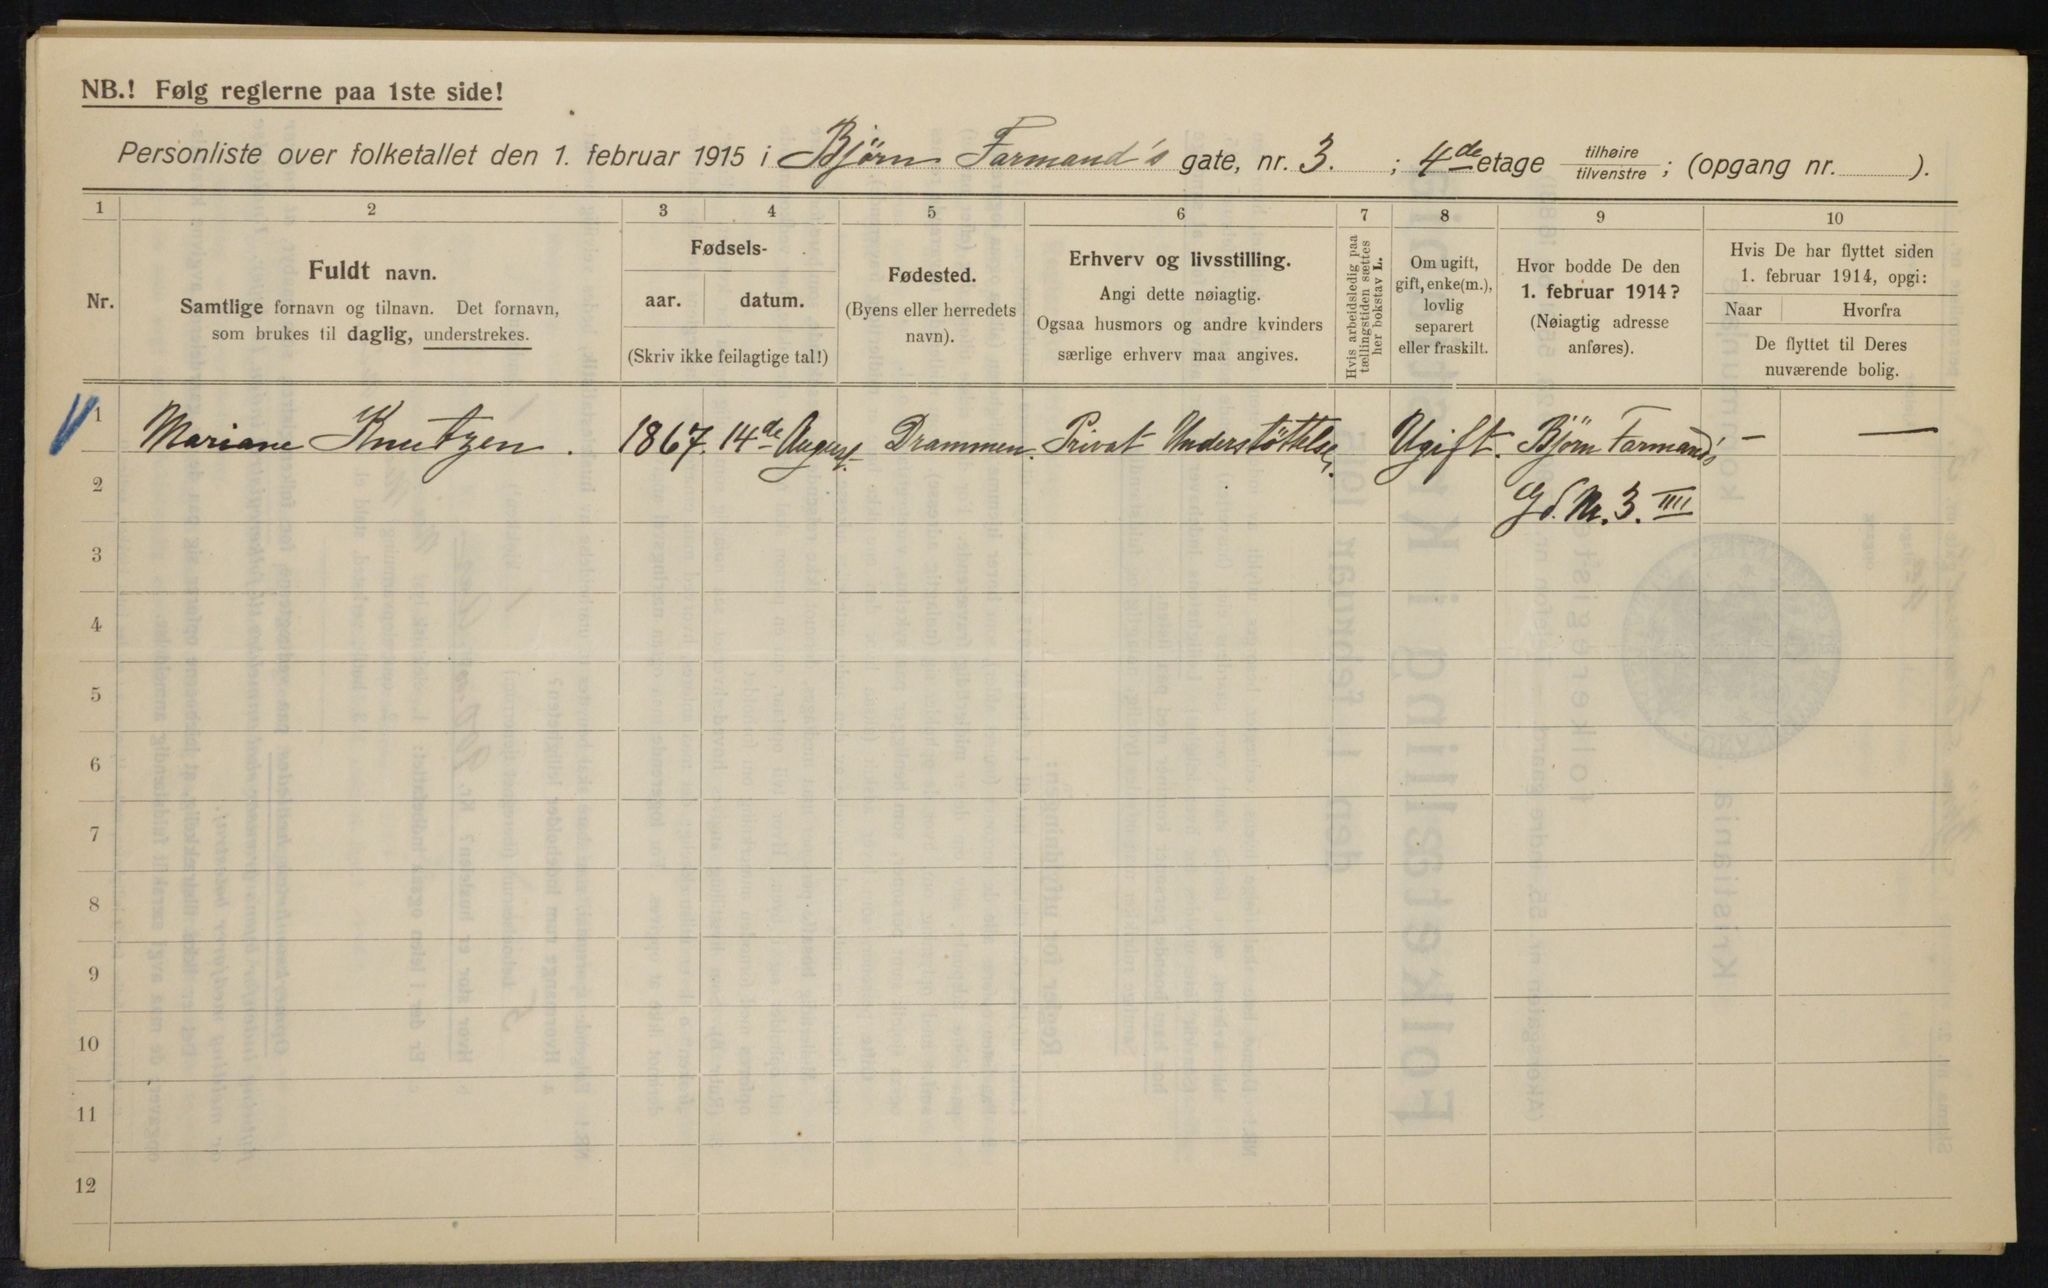 NB.! Følg reglerne paa 1ste side!
Personliste over folketallet den 1. februar 1915 i Bjørn Farmand's gate, nr. 3. ; 4de etage tilhøire tilvenstre ; (opgang nr. ).
1 2 3 4 5 6 7 8 9 10
Nr.
Fuldt navn.
Samtlige fornavn og tilnavn. Det fornavn,
som brukes til daglig, understrekes.
Fødsels-
aar. datum.
(Skriv ikke feilagtige tal!)
Fødested.
(Byens eller herredets
navn).
Erhverv og livsstilling.
Angi dette nøiagtig.
Ogsaa husmors og andre kvinders
særlige erhverv maa angives.
Hvis arbeidsledig paa
tællingstiden sættes
her bokstav L.
Om ugift,
gift, enke(m.),
lovlig
separert
eller fraskilt.
Hvor bodde De den
1. februar 1914?
(Nøiagtig adresse
anføres).
Hvis De har flyttet siden
1. februar 1914, opgi:
Naar Hvorfra
De flyttet til Deres
nuværende bolig.
1 Mariane Knutzen. 1867. 14de August. Drammen. Privat Understøttelse. Ugift. Bjørn Farmand's — —
2 Gd. Nr. 3. IIII
3
4
5
6
7
8
9
10
11
12